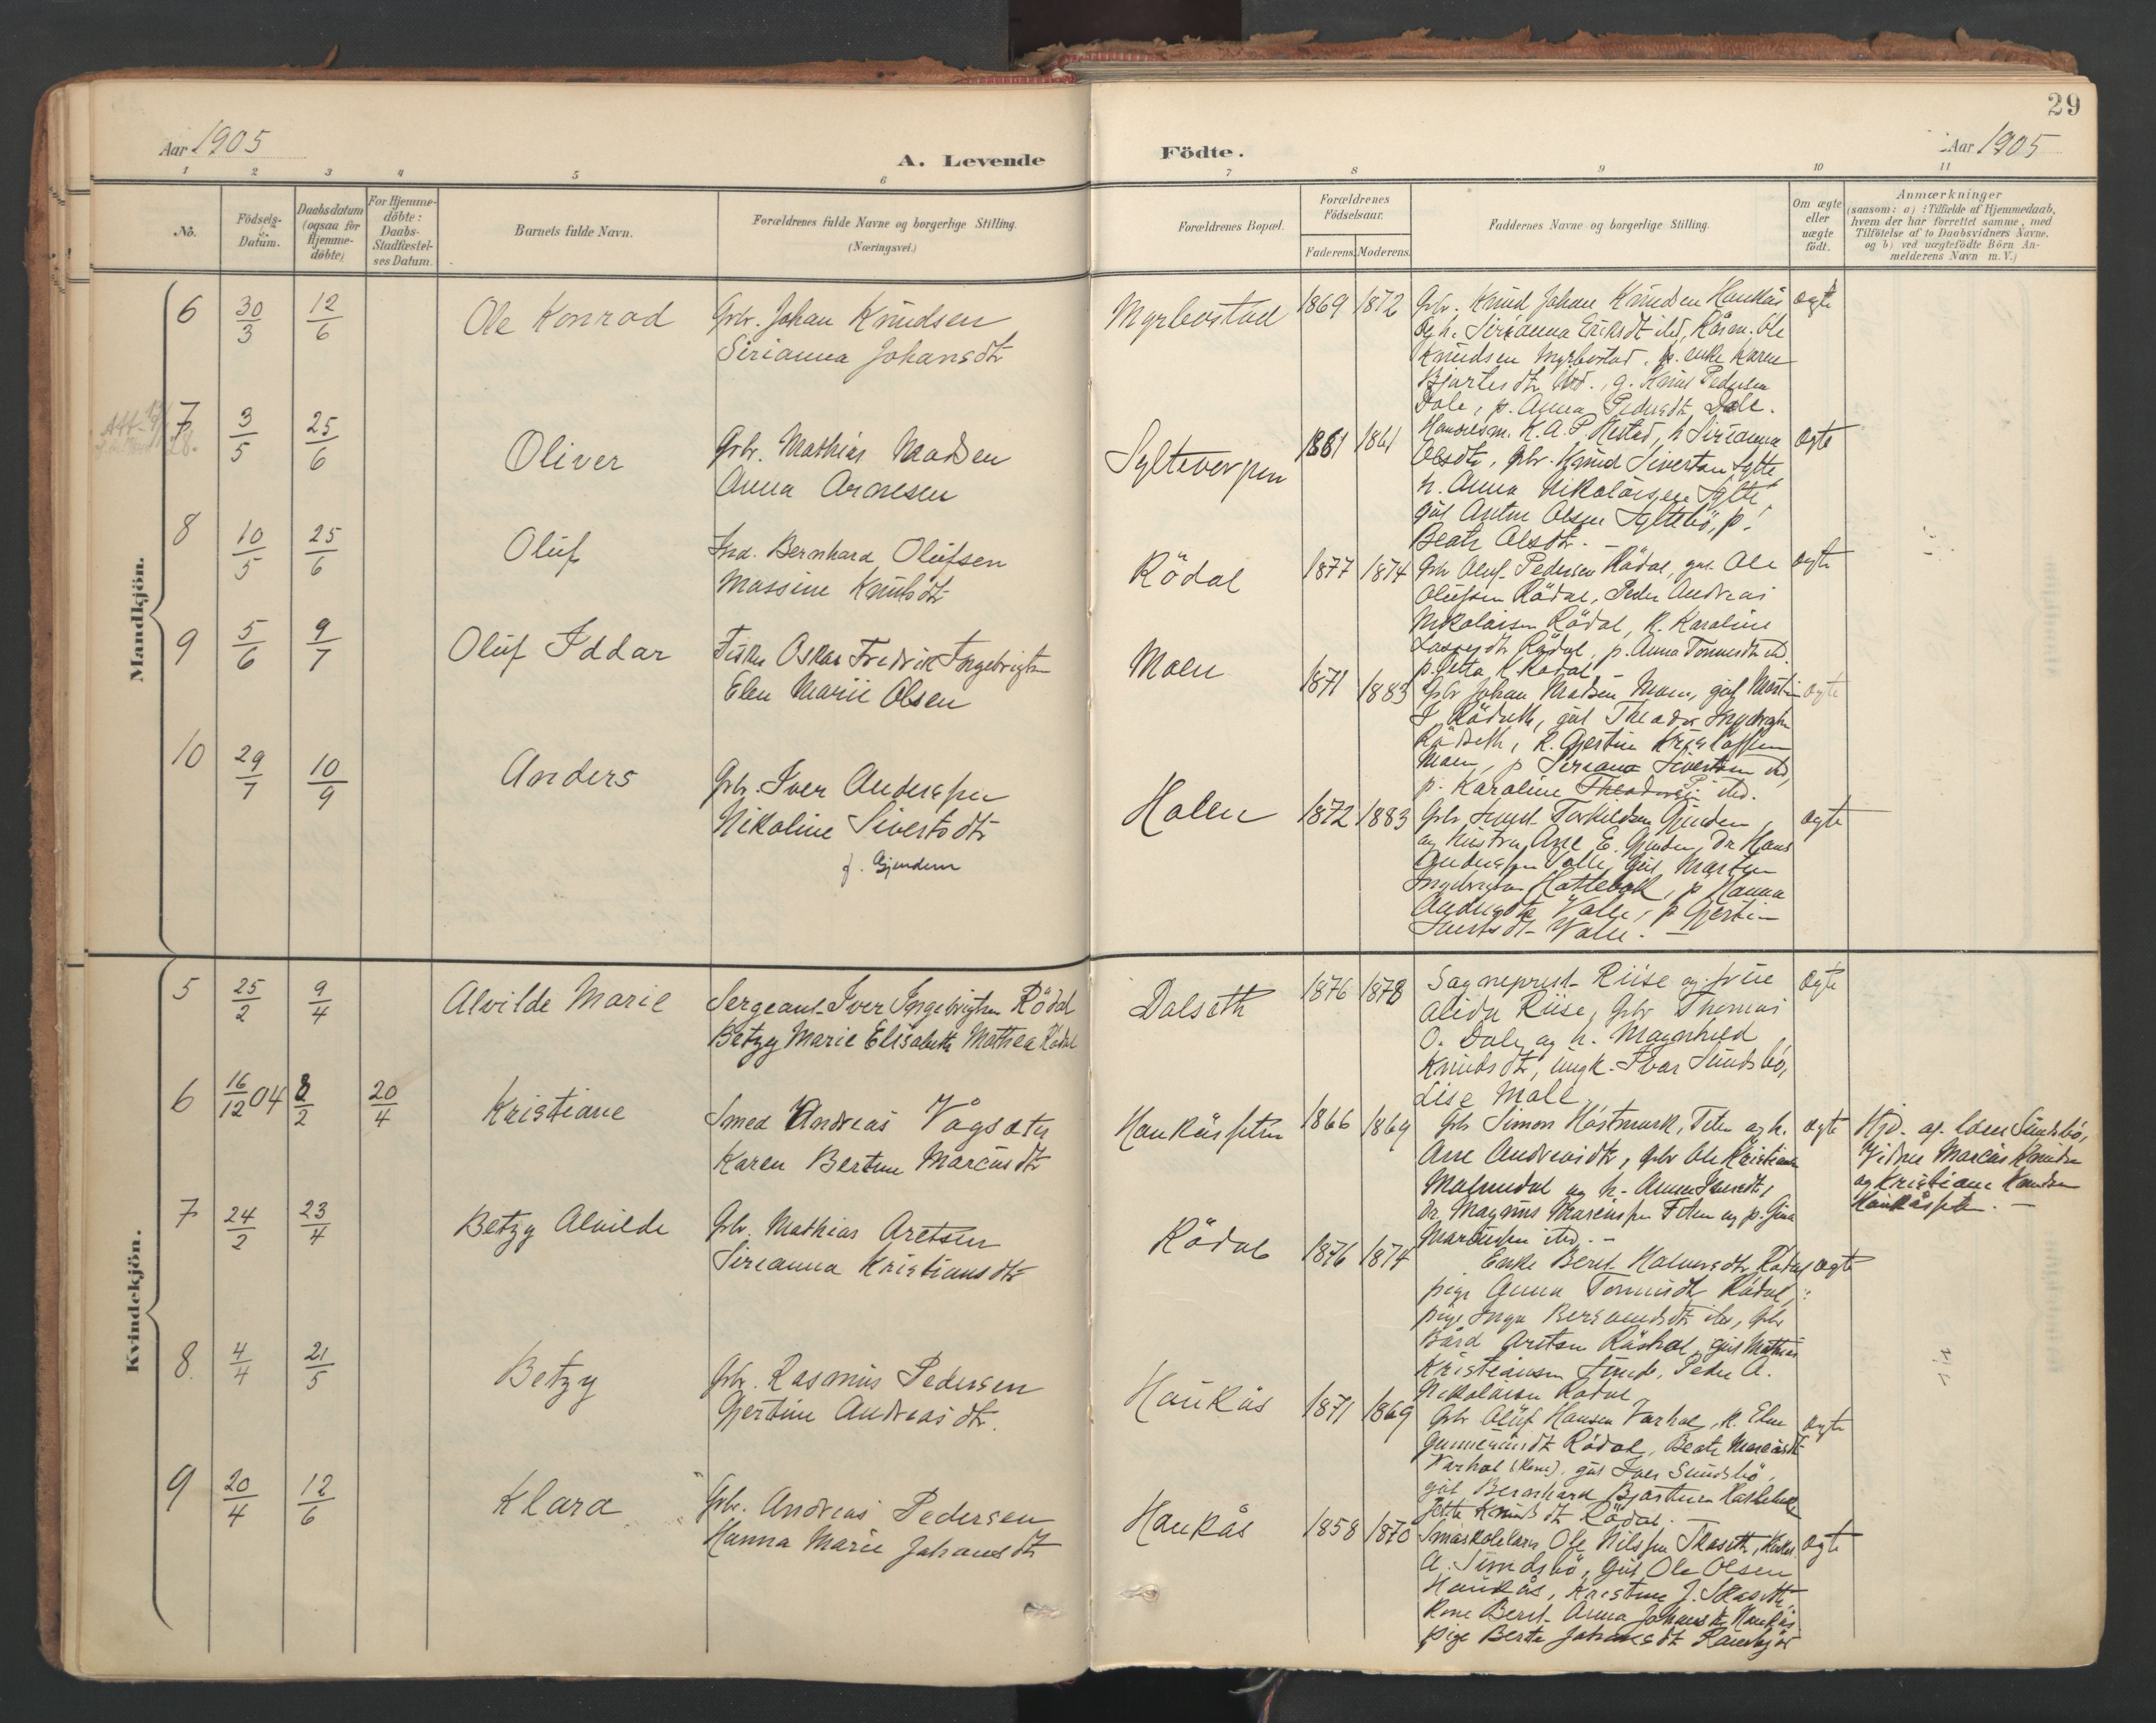 29
Aar 1905
A. Levende
Födte.
Aar 1905
1 2 3 4 5 6 7 8 9 10 11
No.
Födsels-
Datum.
Daabsdatum
(ogsaa for
Hjemme-
döbte)
For Hjemme-
döbte:
Daabs-
Stadfæstel-
ses Datum.
Barnets fulde Navn.
Forældrenes fulde Navne og borgerlige Stilling.
(Næringsvei.)
Forældrenes Bopæl.
Forældrenes
Födselsaar.
Faderens. Moderens.
Faddernes Navne og borgerlige Stilling.
Om ægte
eller
uægte
födt.
Anmærkninger
(saasom: a) i Tilfælde af Hjemmedaab,
hvem der har forrettet samme, med
Tilföielse af to Daabsvidners Navne.
og b) ved uægtefödte Börn An-
melderens Navn m. V.)
Mandkjön.
6 30/3 12/6 Ole Konrad
Gbr. Johan Knudsen
Sirianna Johansdtr
Myrbostad 1869 1872
Gbr. Knud Johan Knudsen Haukås
og h. Sirianna Eriksdt ibd, Råsm. Ole
Knudsen Myrbostad, p. enke Karen
Bjartesdtr ibd., g. Knud Pedersen
Dale, p. Anna Pedersdt Dale.
ægte
7 3/5 25/6 Oliver
Gbr. Mathias Madsen
Anna Arnesen
Syltevorpen 1861 1861
Handelsm. K. A. P. Nestad, h Sirianna
Olsdtr, gbr. Knud Sivertsen Sylte
h. Anna Nikolaisen Sylte
gut Anton Olsen Syltebö, p.
Beate Olsdtr. –
ægte
8 10/5 25/6 Oluf
Ind. Bernhard Olufsen
Massine Knutsdtr
Rödal 1877 1874
Gbr Oluf Pedersen Rödal, gut Ole
Olufsen Rödal, Peder Andreas
Nikolaisen Rödal, K. Karoline
Lassesdtr Rödal, p. Anna Tommesdtr ibd.
p. Jetta K. Rödal
ægte
9 5/6 9/7 Oluf Iddar
Fisker Oskar Fredrik Ingebrigtsen
Elen Marie Olsen
Moen 1871 1883
Gbr Johan Madsen Moen, gut Martin
I. Rödseth, gut Theodor Ingebrigtsen
Rödseth, K. Gjertine Kristoffersen
Moen, p Sirianna Sivertsen ibd,
p. Karoline ibd.
ægte
10 29/7 10/9 Anders
Gbr. Iver Anderssen
Nikoline Sivertsdtr
f. Gjendem
Holen 1872 1883
Gbr Knud Torkildsen Gjendem
og hustru Ane E. Gjendem, Dr. Hans
Anderssen Valle, Gut Martin
Ingebrigtsen Hattebak, p Hanna
Andersdtr Valle, p Gjertine
Knutsdt Valle. –
ægte
Kvindekjön.
5 25/2 9/4 Alvilde Marie
Sergeant Iver Ingebrigtsen Rödal
Betzy Marie Elisabeth Mathea Rödal
Dalseth 1876 1878
Sogneprest Riise og frue
Alida Riise, Gbr Thomas
O. Dale og h. Magnhild
Knudsdt, ungk. Ivar Sundsbö,
Lise Male
ægte
6 16/12 04 8/2 20/4 Kristiane
Smed Andreas Vågsæter
Karen Bertine Marcusdtr
Haukåssetra 1866 1869
Gbr Simon Hóstmark, Teten og h.
Ane Andreasdtr, gbr Ole Kristiansen
Malmedal og h. Anne Knutsdt,
Dr. Magnus Marcussen Teten og p. Gina
Marcussen ibd. –
ægte
Hjd. af Iver Sundsbö,
Vidner Marcus Knudsen
og Kristiane Knudsen
Haukåssetra. –
7 24/2 23/4 Betzy Alvilde
Gbr. Mathias Aretsen
Sirianna Kristiansdtr
Rödal 1876 1874
Enke Berit Halvorsdtr Rödal
pige Anna Tommesdt Rödal,
pige Inga Bersvendsdt ibd, Gbr
Bård Aretsen Råshol, gut Mathias
Kristiansen Sunde, Peder A.
Nikolaisen Rödal
ægte
8. 4/4 21/5 Betzy
Gbr. Rasmus Pedersen
Gjertine Andreasdtr.
Haukås 1871 1869
Gbr Oluf Hansen Varhol, K. Elen
Gunnersdt Rödal, Beate Marcusdt
Varhol (Kone), gut Iver Sundsbö,
gut Bernhard Bjartnesen
Jetta Knudsdt Rödal.
ægte
9 20/4 12/6 Klara
Gbr. Andreas Pedersen
Hanna Marie Johansdtr
Haukås 1858 1870
Småskolelærer Ole Nilssen Skaseth,
A. Sundsbö, Gut Ole Olsen
Haukås, Kristine J. Skaseth,
Kone Berit Anna Johansdtr Haukås
pige Berte Johansdt
ægte